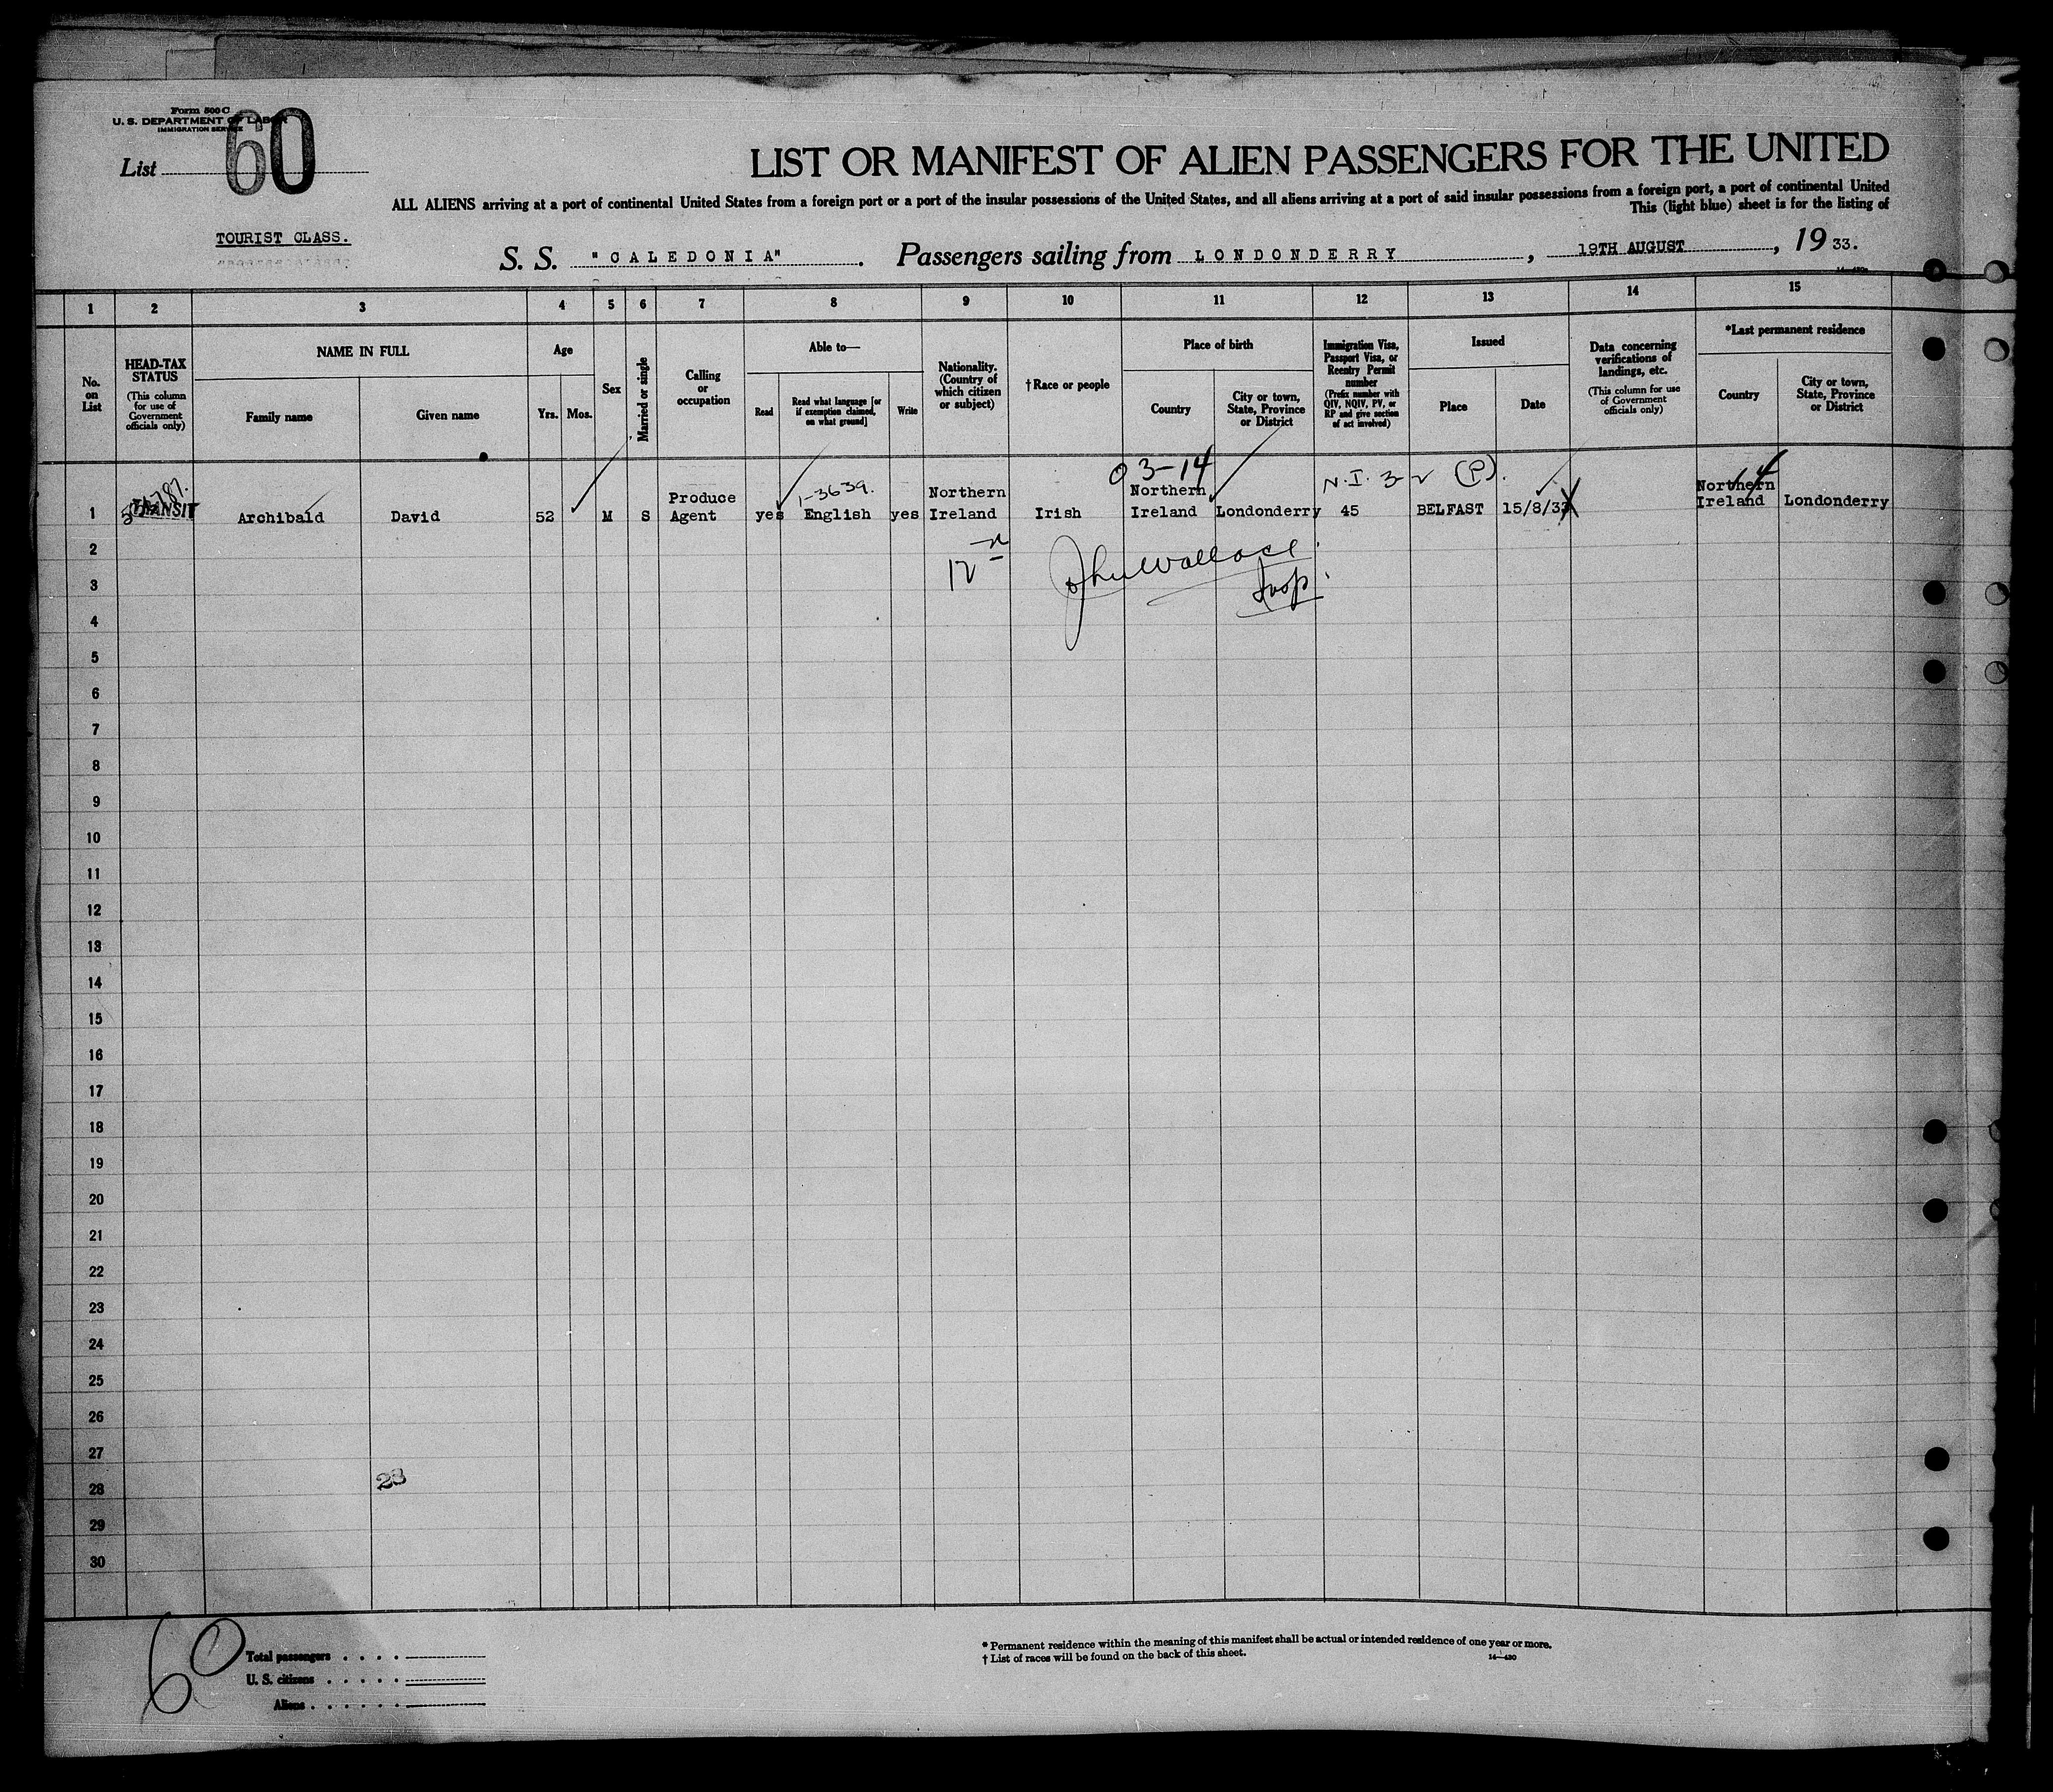 Form 500 C
U. S. DEPARTMENT OF LABOR
IMMIGRATION SERVICE
List 60
LIST OR MANIFEST OF ALIEN PASSENGERS FOR THE UNITED
ALL ALIENS arriving at a port of continental United States from a foreign port or a port of the insular possessions of the United States, and all aliens arriving at a port of said insular possessions from a foreign port, a port of continental United
This (light blue) sheet is for the listing of
TOURIST CLASS.
S. S. "CALEDONIA". Passengers sailing from LONDONDERRY, 19TH AUGUST, 1933.
1 2 3 4 5 6 7 8 9 10 11 12 13 14 15
No. on List
HEAD-TAX STATUS (This column for use of Government officials only)
NAME IN FULL
Family name
Given name
Age
Yrs. Mos.
Sex
Married or single
Calling or occupation
Able to—
Read
Read what language [or if exemption claimed, on what ground]
Write
Nationality. (Country of which citizen or subject)
† Race or people
Place of birth
Country
City or town, State, Province or District
Immigration Visa, Passport Visa, or Reentry Permit number (Prefix number with QIV, NQIV, PV, or RP and give section of act involved)
Issued
Place
Date
Data concerning verifications of landings, etc. (This column for use of Government officials only)
*Last permanent residence
Country
City or town, State, Province or District
03-14
N.I. 3-2 (P).
14
1-3639.
1 TRANSIT Archibald David 52 M S Produce Agent yes English yes Northern Ireland Irish Northern Ireland Londonderry 45 BELFAST 15/8/33 Northern Ireland Londonderry
2
John Wallace
3
Insp.
4
5
6
7
8
9
10
11
12
13
14
15
16
17
18
19
20
21
22
23
24
25
26
27
23
28
29
30
60
Total passengers . . . .
U. S. citizens . . . . .
Aliens . . . . . .
* Permanent residence within the meaning of this manifest shall be actual or intended residence of one year or more.
† List of races will be found on the back of this sheet.
14—430